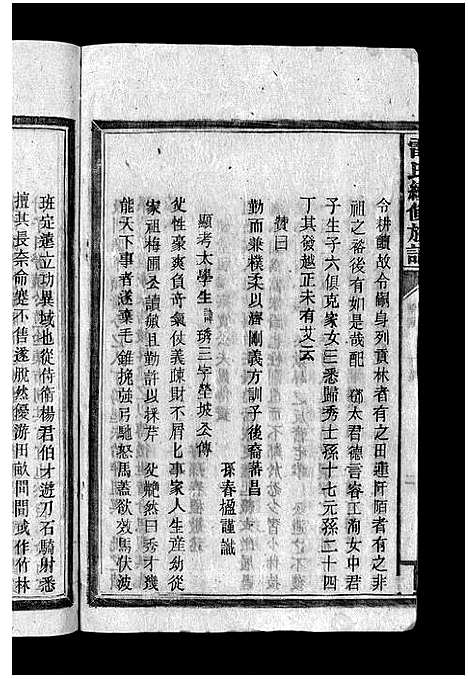 雷氏續修族譜
令耕讀故令嗣身列賁林者有之田連阡陌者有之非
祖之裕後有如是哉配 鄧太君德言容工洵女中君
子生子六俱克家女三悉歸秀士孫十七元孫二十四
丁其發越正未有艾云
贊曰
勤而兼樸柔以濟剛義方訓子後裔蕃昌
孫春楹謹識
顯考太學生諱琇三字瑩坡公傳
公性豪爽負奇氣仗義疎財不屑屑事家人生産幼從
家祖梅圃公讀敏且勤許以採芹 公艴然曰秀才幾
能天下事者遂棄毛錐挽強弓馳怒馬蓋欲效馬伏波
班定遠立功異域也從侍衛楊君伯才遊刀石騎射悉
擅其長奈命蹇不售遂脫然優游田畝間間或作竹林